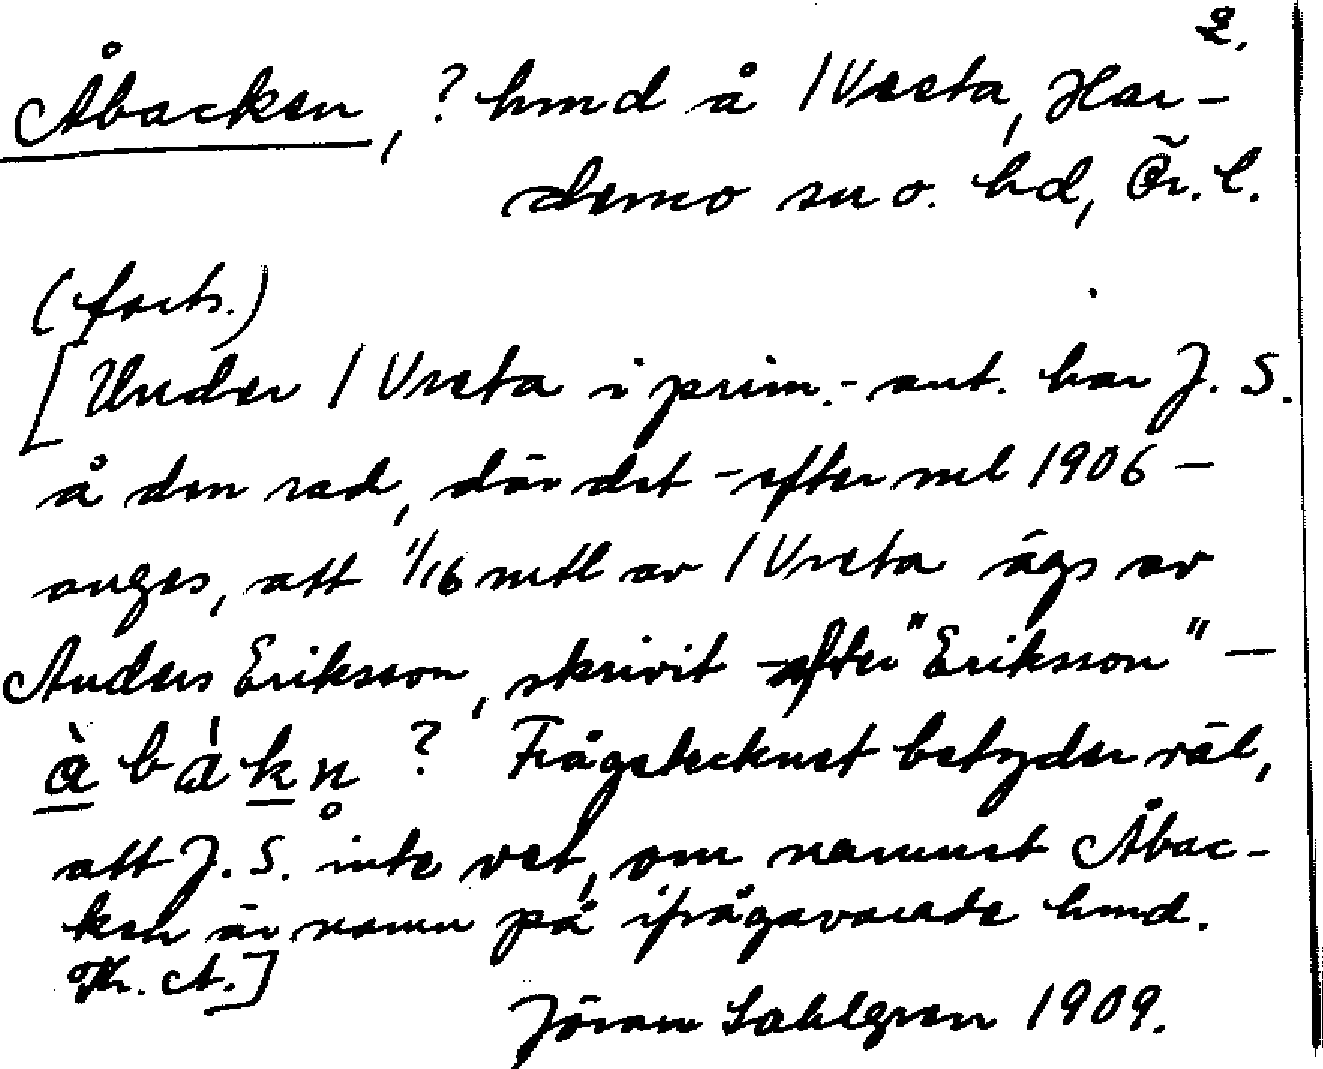 2.
Åbacken, ? hmd å 1 Vreta, Har-
demo sn o. hd, Ör. l.
(forts.)
[Under 1 Vreta i prim.-ant. har J. S.
å den rad, där det - efter ml 1906 -
anges, att 1/16 mtl av 1 Vreta ägs av
Anders Eriksson, skrivit - efter "Eriksson" -
å̀bákn ? Frågetecknet betyder väl,
att J. S. inte vet, om namnet Åbac-
ken är namn på ifrågavarande hmd.
Kr. A.]
Jöran Sahlgren 1909.